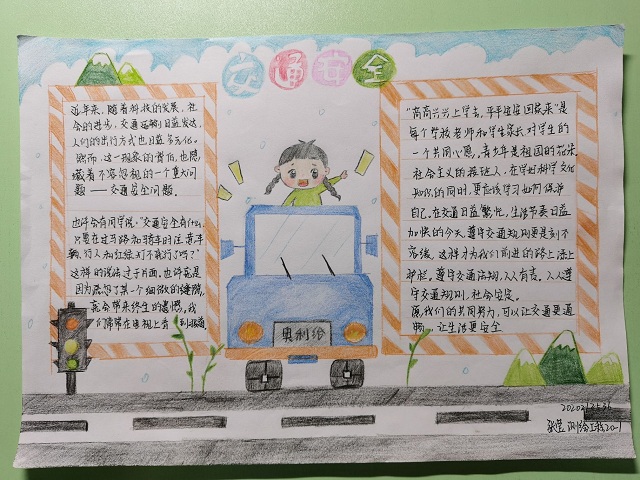 交通安全
近年来,随着科技的发展,社
会的进步,交通运输日益发达,
人们的出行方式也日益多元化。
然而,这一现象的背后,也隐
藏着不容忽视的一个重大问
题——交通安全问题。
也许会有同学说:“交通安全有什么,
只要在过马路和骑车时注意车
辆、行人和红绿灯不就行了吗?”
这样的说法过于片面,也许就是
因为忽忽了某一个细微的缝隙,
就会带来终生的遗憾。我
们常常在电视上看到报道
“高高兴兴上学去,平平安安回家来”是
每个学校老师和学生家长对学生的
一个共同心愿。青少年是祖国的花朵,
社会主义的接班人,在学好科学文化
知识的同时,更应该学习如何保护
自己。在交通日益繁忙,生活节奏日益
加快的今天,遵守交通规则更是刻不
容缓,这样才为我们前进的路上添上
护栏。遵守交通法规,人人有责。人人遵
守交通规则,社会安定。
愿,我们的共同努力,可以让交通更通
畅,让生活更安全
奥利给
测绘工程20-1